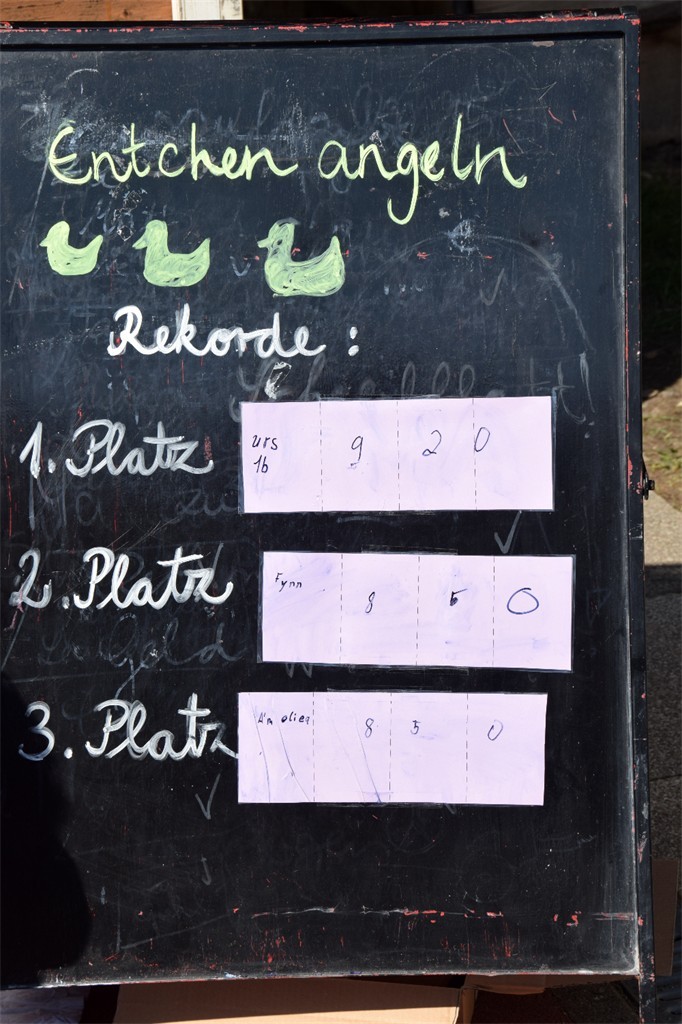 Entchen angeln
Rekorde :
1. Platz urs 9 2 0
1b
2. Platz Fynn 8 5 0
3. Platz 8 5 0